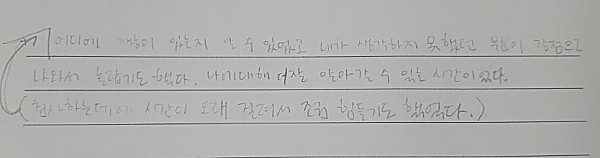 어디에 재능이 있는지 알 수 있었고 내가 생각하지 못했던 부분이 강점으로
나와서 놀랍기도 했다. 나에대해 더잘 알아갈 수 있는 시간이었다.
(검사하는데에 시간이 오래 걸려서 조금 힘들기도 했었다.)